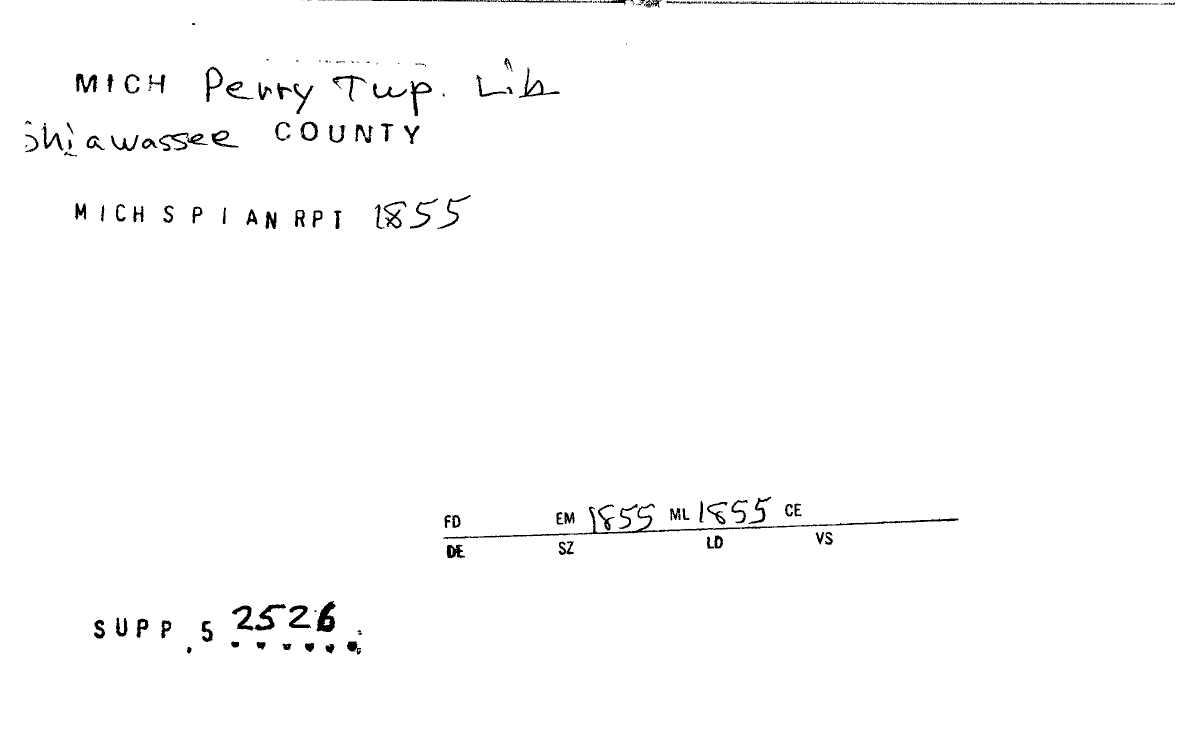 MICH Perry Twp. Lib
Shiawassee COUNTY
MICH S P I AN RPT 1855
FD EM 1855 ML 1855 CE
DE SZ LD VS
SUPP.5 2526